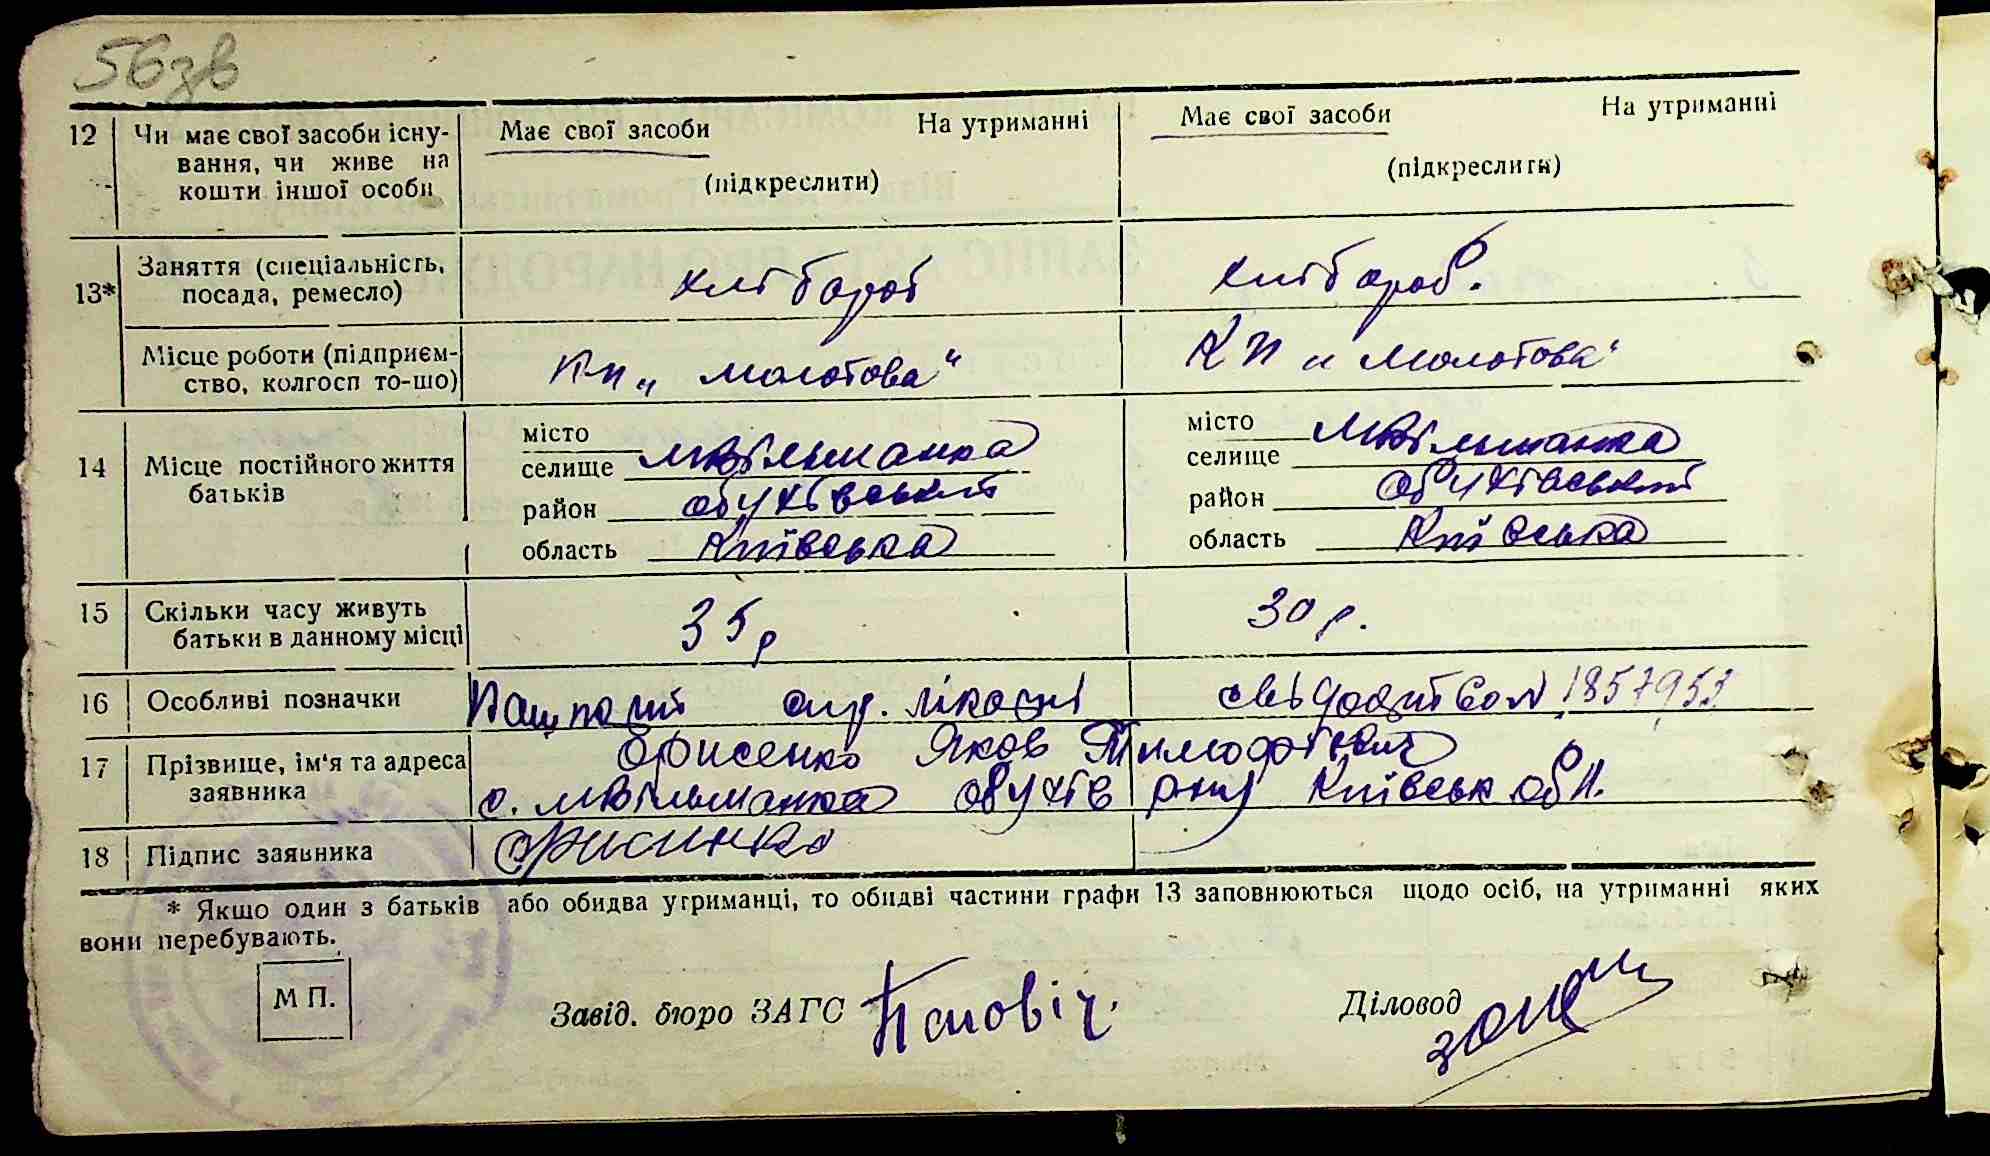 56зв
12 Чи має свої засоби існу- Має свої засоби На утриманні Має свої засоби На утриманні
вання, чи живе на
кошти іншої особи (підкреслити) (підкреслити)
13* Заняття (спеціальність, хлібороб хлібороб.
посада, ремесло)
Місце роботи (підприєм- „Молотова“ „Молотова“
ство, колгосп то-що)
14 Місце постійного життя місто місто
батьків селище МВільшанка селище МВільшанка
район Обухівський район Обухівський
область Київська область Київська
15 Скільки часу живуть 35 р 30 р.
батьки в данному місці
16 Особливі позначки 1857953
17 Прізвище, ім'я та адреса Борисенко Яков Тимофієвич
заявника с. МВільшанка Обухів р-ну Київськ обл.
18 Підпис заявника Борисенко
* Якщо один з батьків або обидва утриманці, то обидві частини графи 13 заповнюються щодо осіб, на утриманні яких
вони перебувають.
М П.
Завід. бюро ЗАГС Діловод